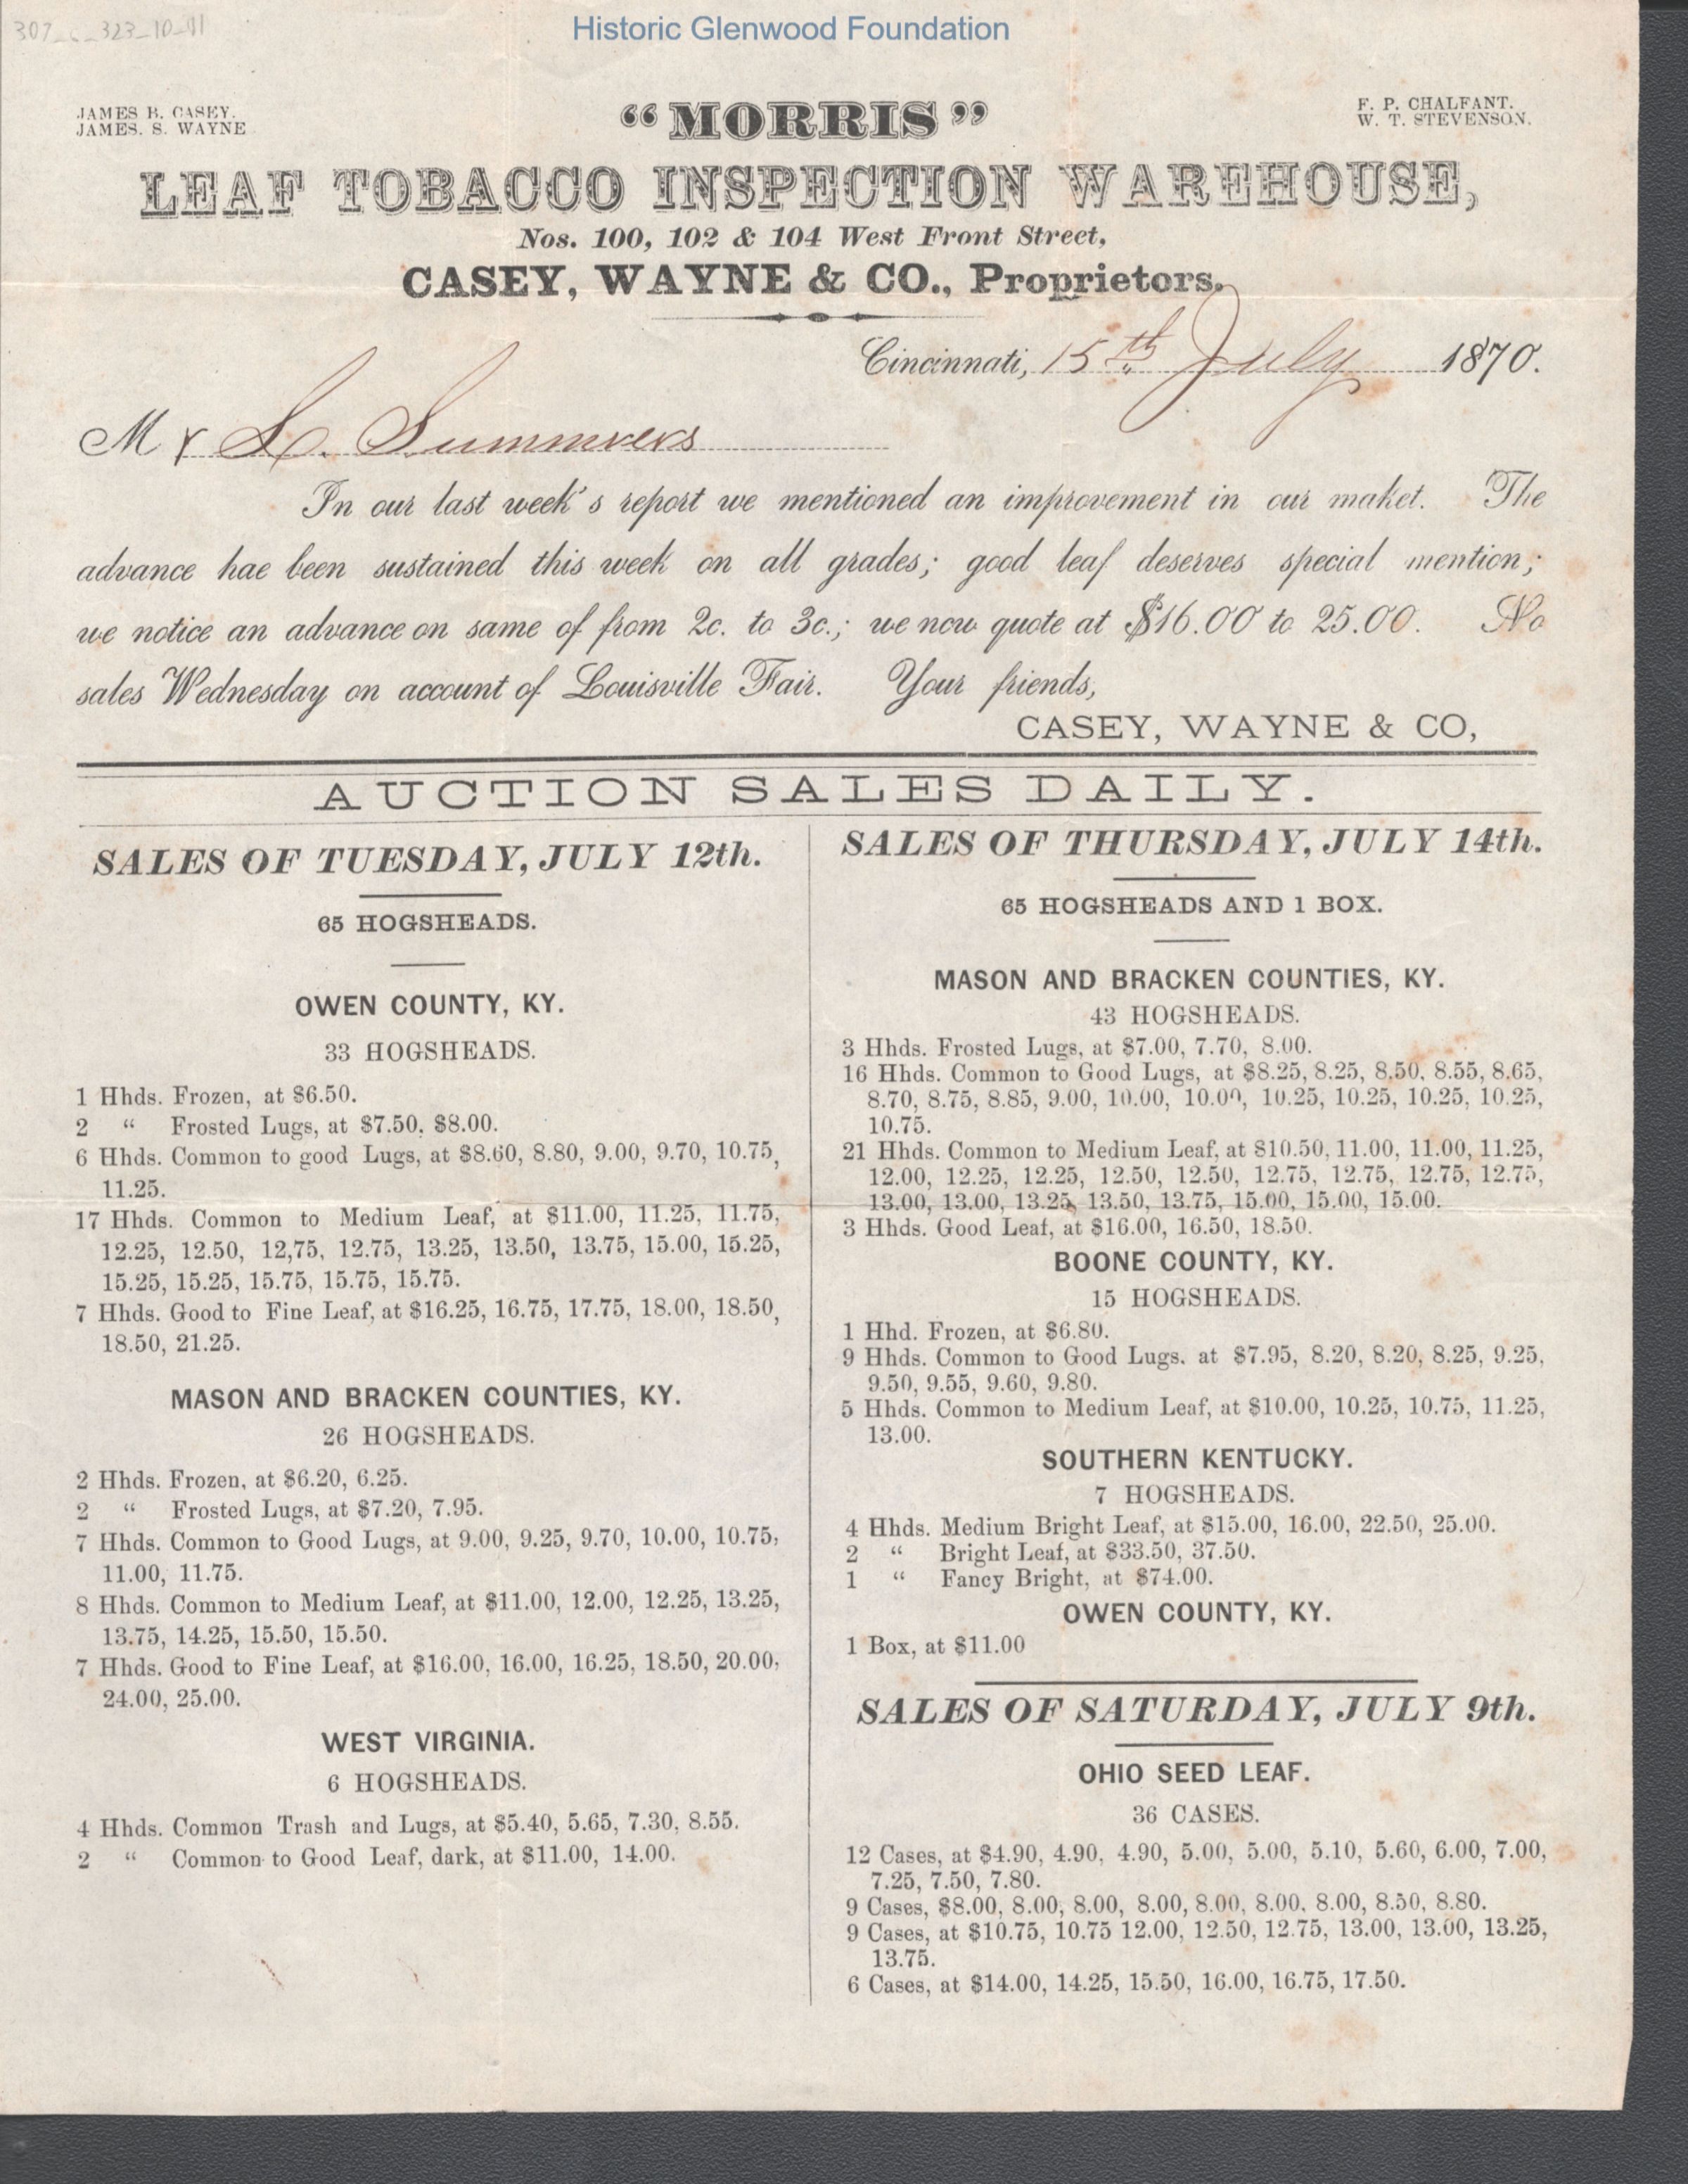 307_c_323_10_01
Historic Glenwood Foundation
JAMES B. CASEY.
JAMES. S. WAYNE
F. P. CHALFANT.
W. T. STEVENSON.
“MORRIS”
LEAF TOBACCO INSPECTION WAREHOUSE,
Nos. 100, 102 & 104 West Front Street,
CASEY, WAYNE & CO., Proprietors.
Cincinnati, 15th July 1870.
Mr L. Summers
In our last week's report we mentioned an improvement in our maket. The
advance hae been sustained this week on all grades; good leaf deserves special mention;
we notice an advance on same of from 2c. to 3c.; we now quote at $16.00 to 25.00. No
sales Wednesday on account of Louisville Fair. Your friends,
CASEY, WAYNE & CO,
AUCTION SALES DAILY.
SALES OF TUESDAY, JULY 12th.
65 HOGSHEADS.
OWEN COUNTY, KY.
33 HOGSHEADS.
1 Hhds. Frozen, at $6.50.
2 “ Frosted Lugs, at $7.50, $8.00.
6 Hhds. Common to good Lugs, at $8.60, 8.80, 9.00, 9.70, 10.75,
11.25.
17 Hhds. Common to Medium Leaf, at $11.00, 11.25, 11.75,
12.25, 12.50, 12,75, 12.75, 13.25, 13.50, 13.75, 15.00, 15.25,
15.25, 15.25, 15.75, 15.75, 15.75.
7 Hhds. Good to Fine Leaf, at $16.25, 16.75, 17.75, 18.00, 18.50,
18.50, 21.25.
MASON AND BRACKEN COUNTIES, KY.
26 HOGSHEADS.
2 Hhds. Frozen, at $6.20, 6.25.
2 “ Frosted Lugs, at $7.20, 7.95.
7 Hhds. Common to Good Lugs, at 9.00, 9.25, 9.70, 10.00, 10.75,
11.00, 11.75.
8 Hhds. Common to Medium Leaf, at $11.00, 12.00, 12.25, 13.25,
13.75, 14.25, 15.50, 15.50.
7 Hhds. Good to Fine Leaf, at $16.00, 16.00, 16.25, 18.50, 20.00,
24.00, 25.00.
WEST VIRGINIA.
6 HOGSHEADS.
4 Hhds. Common Trash and Lugs, at $5.40, 5.65, 7.30, 8.55.
2 “ Common to Good Leaf, dark, at $11.00, 14.00.
SALES OF THURSDAY, JULY 14th.
65 HOGSHEADS AND 1 BOX.
MASON AND BRACKEN COUNTIES, KY.
43 HOGSHEADS.
3 Hhds. Frosted Lugs, at $7.00, 7.70, 8.00.
16 Hhds. Common to Good Lugs, at $8.25, 8.25, 8.50, 8.55, 8.65,
8.70, 8.75, 8.85, 9.00, 10.00, 10.00, 10.25, 10.25, 10.25, 10.25,
10.75.
21 Hhds. Common to Medium Leaf, at $10.50, 11.00, 11.00, 11.25,
12.00, 12.25, 12.25, 12.50, 12.50, 12.75, 12.75, 12.75, 12.75,
13.00, 13.00, 13.25, 13.50, 13.75, 15.00, 15.00, 15.00.
3 Hhds. Good Leaf, at $16.00, 16.50, 18.50.
BOONE COUNTY, KY.
15 HOGSHEADS.
1 Hhd. Frozen, at $6.80.
9 Hhds. Common to Good Lugs. at $7.95, 8.20, 8.20, 8.25, 9.25,
9.50, 9.55, 9.60, 9.80.
5 Hhds. Common to Medium Leaf, at $10.00, 10.25, 10.75, 11.25,
13.00.
SOUTHERN KENTUCKY.
7 HOGSHEADS.
4 Hhds. Medium Bright Leaf, at $15.00, 16.00, 22.50, 25.00.
2 “ Bright Leaf, at $33.50, 37.50.
1 “ Fancy Bright, at $74.00.
OWEN COUNTY, KY.
1 Box, at $11.00
SALES OF SATURDAY, JULY 9th.
OHIO SEED LEAF.
36 CASES.
12 Cases, at $4.90, 4.90, 4.90, 5.00, 5.00, 5.10, 5.60, 6.00, 7.00,
7.25, 7.50, 7.80.
9 Cases, $8.00, 8.00, 8.00, 8.00, 8.00, 8.00, 8.00, 8.50, 8.80.
9 Cases, at $10.75, 10.75 12.00, 12.50, 12.75, 13.00, 13.00, 13.25,
13.75.
6 Cases, at $14.00, 14.25, 15.50, 16.00, 16.75, 17.50.